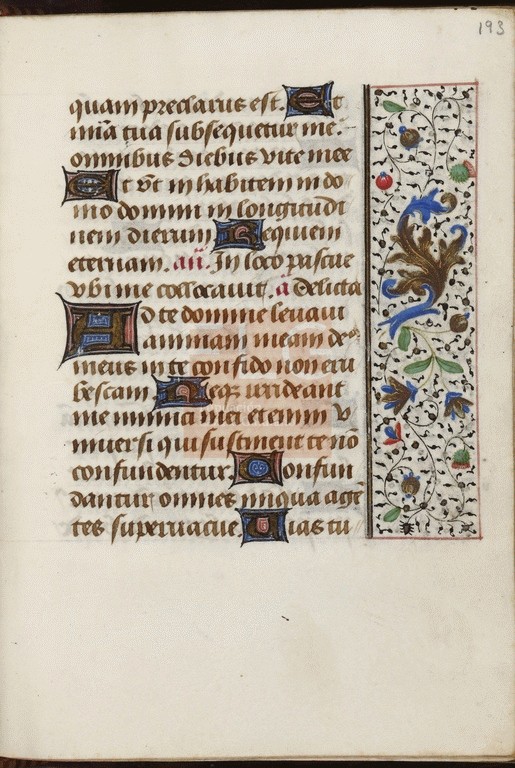 193
quam preclarus est. Et
mīa tua subsequetur me.
omnibus diebus vite mee
Et vt inhabitem in do
mo domini in longitudi
nem dierum Requiem
eternam. añ. In loco pascue
vbi me collocauit. a Delicta
Ad te domine leuaui
animam meam de⁹
meus in te confido non eru
bescam. Neq; irrideant
me inimici mei etenim v
niuersi qui sustinent te nō
confundentur. Confun
dantur omnes iniqua agē
tes superuacue. Vias tu